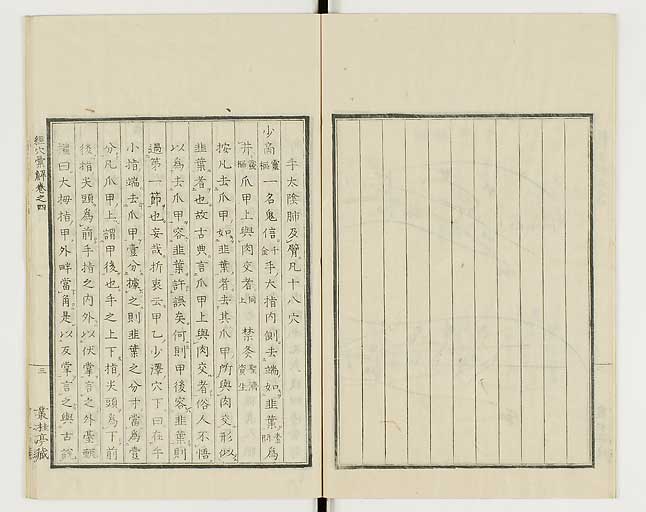 手太陰肺及臂凡十八穴
少商靈樞一名鬼信千金手大指內側去端如韭葉素問為
井靈樞爪甲上與肉交者同上禁灸聖濟資生
按凡去爪甲如韭葉者去其爪甲所與肉交形似
韭葉者也故古典言爪甲上與肉交者俗人不悟
以為去爪甲容韭葉許誤矣何則甲後容韭葉則
過第一節也妄哉折衷云甲乙少澤穴下曰在手
小指端去爪甲壹分據之則韭葉之分寸當為壹
分凡爪甲上謂甲後也手之上下指尖頭為下前
後指尖頭為前手指之內外以伏掌言之外臺甄
權曰大拇指甲外畔當角是以反掌言之與古說
經穴彙解卷之四
三
叢桂亭藏